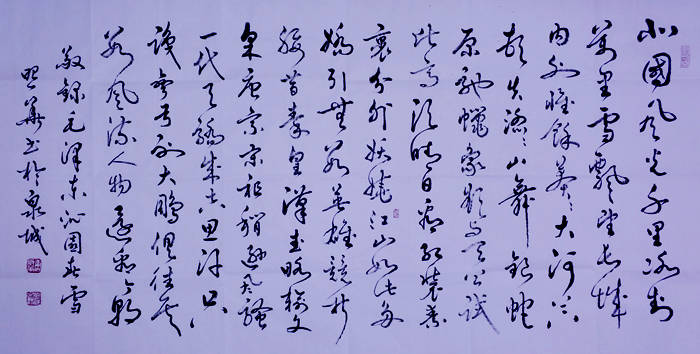 北國風光千里冰封
萬里雪飄望長城
內外惟餘莽莽大河上下
頓失滔滔山舞銀蛇
原馳蠟象欲與天公試
比高須晴日看紅裝素
裹分外妖嬈江山如此多
嬌引無數英雄競折
腰昔秦皇漢武略輸文
采唐宗宋祖稍遜風騷
一代天驕成吉思汗只
識彎弓射大鵰俱往矣
數風流人物還看今朝
敬錄毛澤東沁園春雪
照華書於泉城